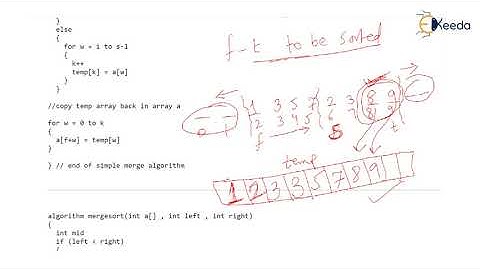 }
else
{
for w = i to s-1
{
k++
temp[k] = a[w]
}
}
//copy temp array back in array a
for w = 0 to k
{
a[f+w] = temp[w]
}
} // end of simple merge algorithm
algorithm mergesort(int a[] , int left , int right)
{
int mid
if (left < right)
Keeda
f-t to be sorted
1 3 5 7 2 3 8 9
2 3 4 5 6 7 8 9
f t
temp
1 2 3 3 5 7 8 9